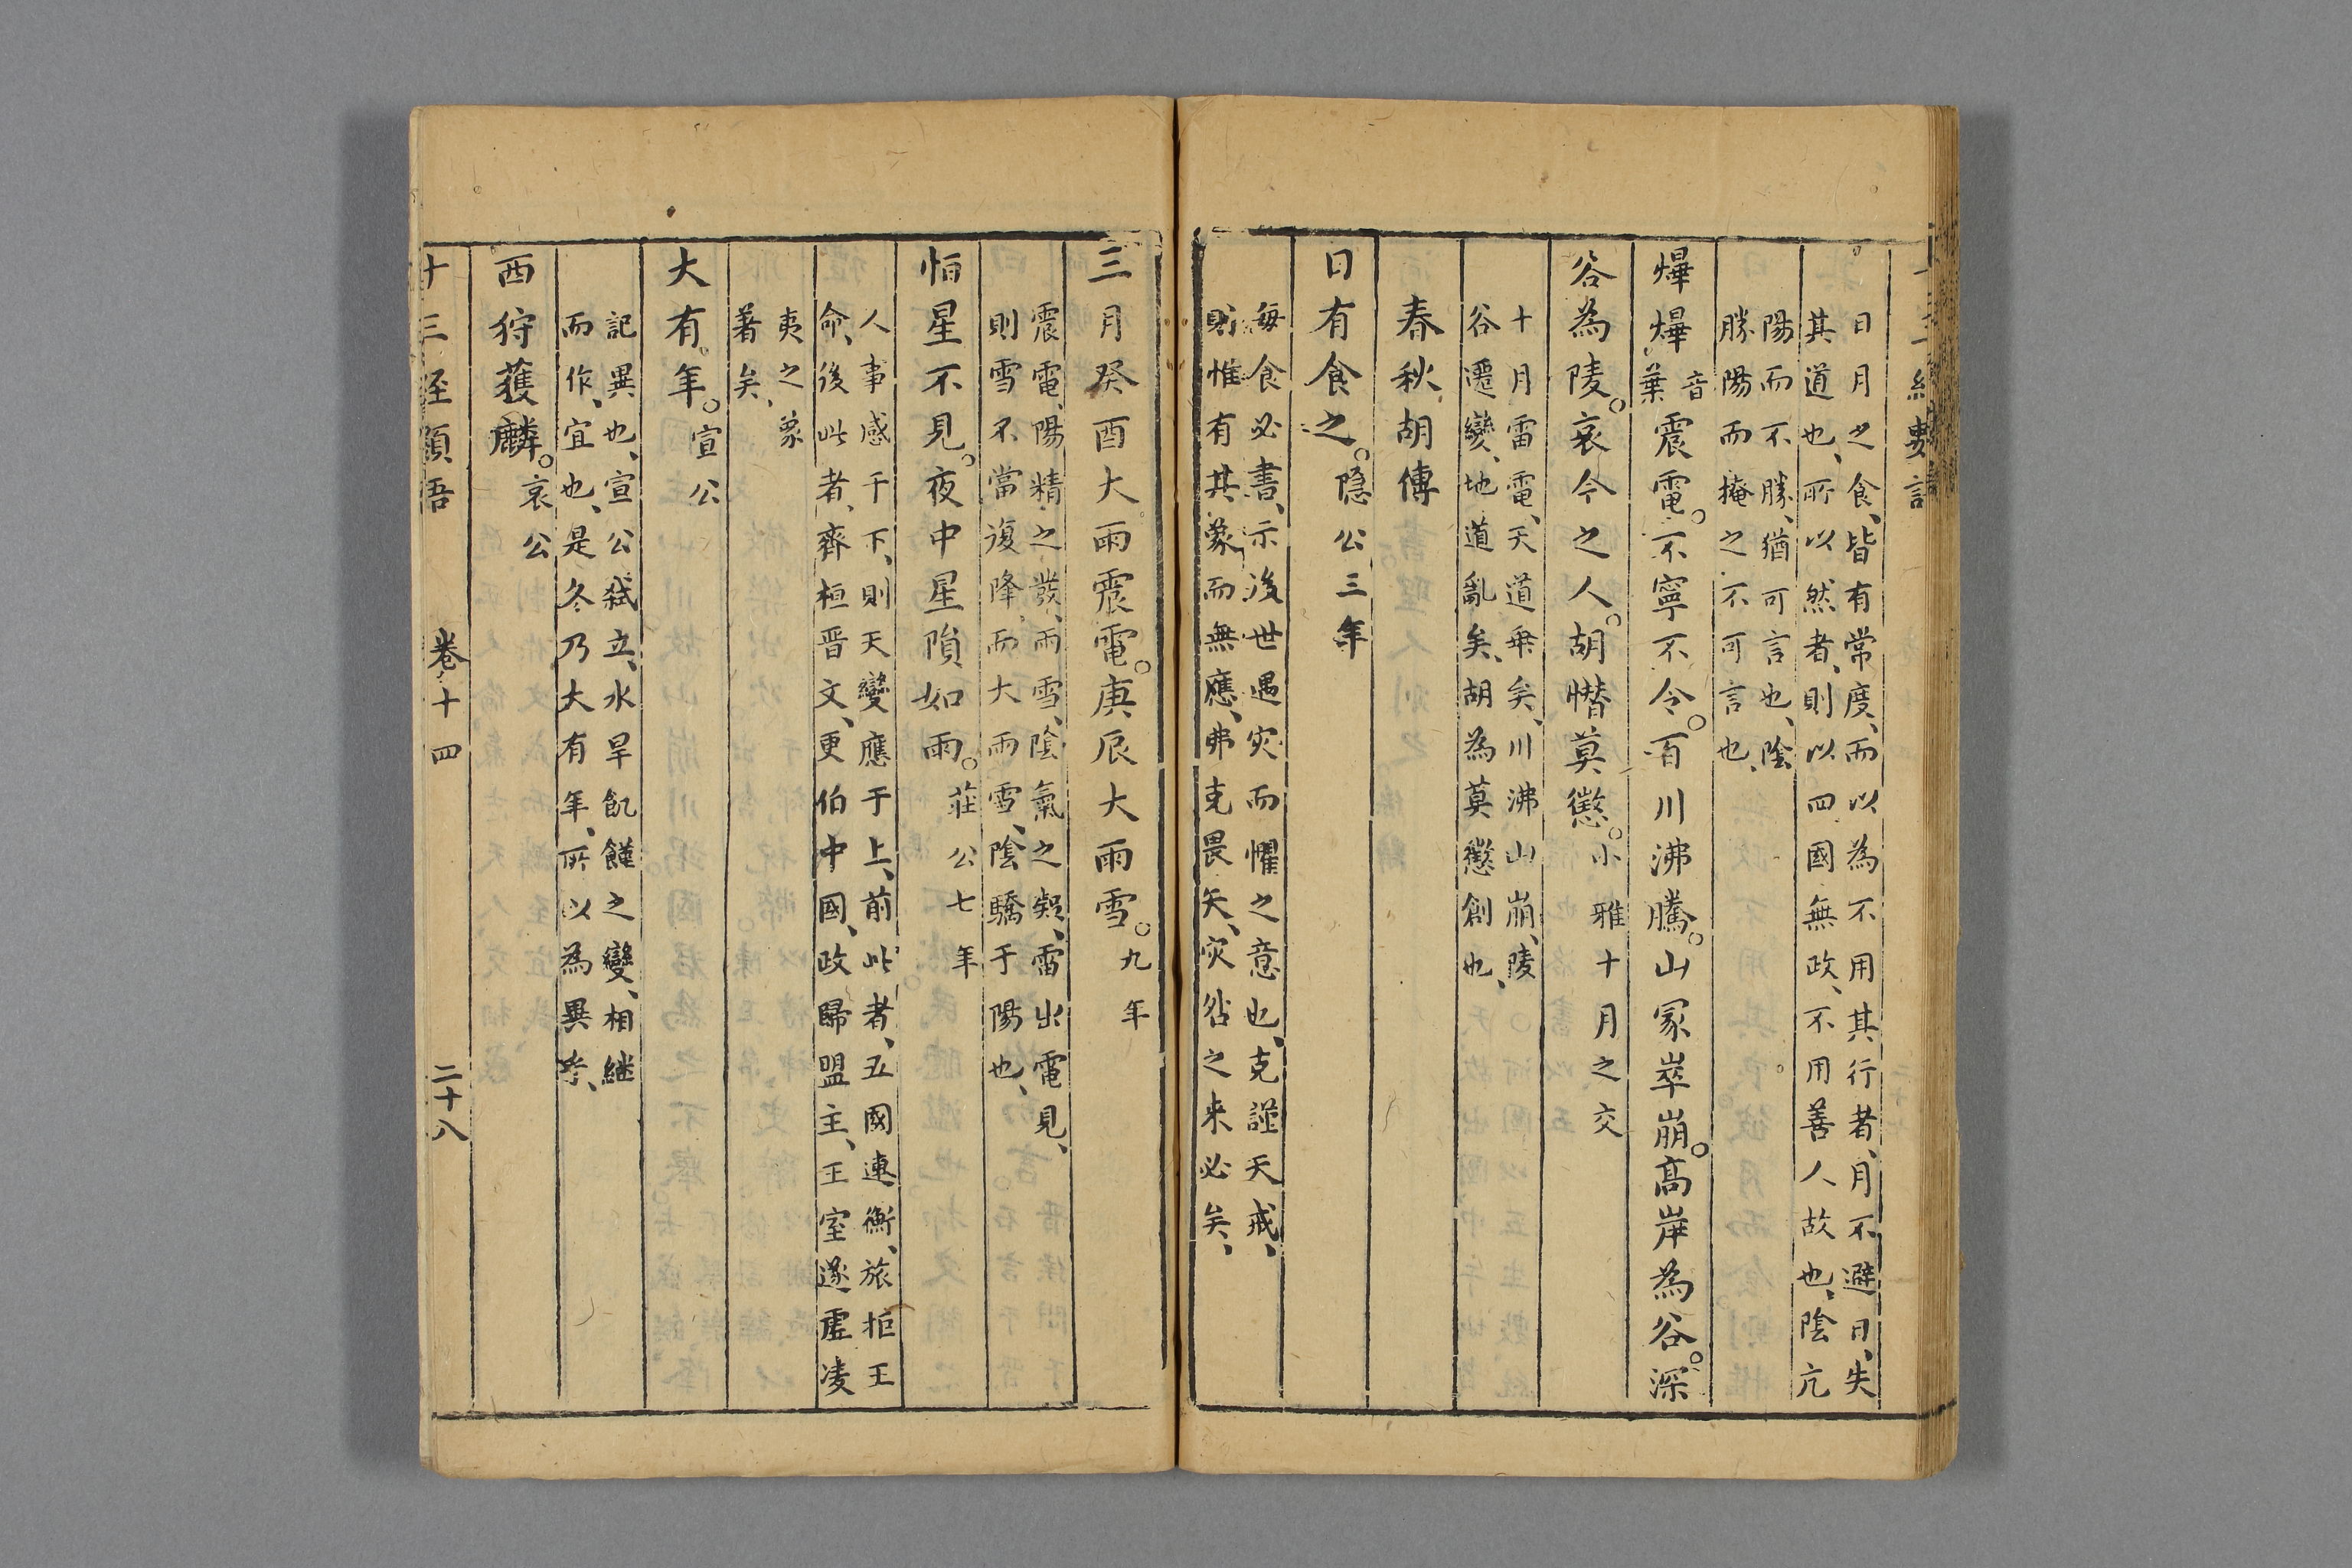 日月之食、皆有常度、而以為不用其行者、月不避日、失
其道也、所以然者、則以四國無政、不用善人故也、陰亢
陽而不勝、猶可言也、陰
勝陽而掩之不可言也、
爗爗音葉震電。不寧不令。百川沸騰。山冢崒崩。高岸為谷。深
谷為陵。哀今之人。胡憯莫懲。小雅十月之交
十月雷電、天道乖矣、川沸山崩、陵
谷遷變、地道亂矣、胡為莫懲創也、
春秋胡傳
日有食之。隱公三年
每食必書、示後世遇灾而懼之意也、克謹天戒、
則惟有其象而無應、弗克畏矣、灾咎之来必矣、
三月癸酉大雨震電。庚辰大雨雪。九年
震電、陽精之發、雨雪、陰氣之凝、雷出電見、
則雪不當復降、而大雨雪、陰驕于陽也、
恒星不見。夜中星隕如雨。莊公七年
人事感于下、則天變應于上、前此者、五國連衡、旅拒王
命、後此者、齊桓晋文、更伯中國、政歸盟主、王室遂虛凌
夷之象
著矣、
大有年。宣公
記異也、宣公弑立、水旱飢饉之變、相継
而作、宜也、是冬乃大有年、所以為異乎、
西狩獲麟。哀公
十三經類語 卷十四 二十八